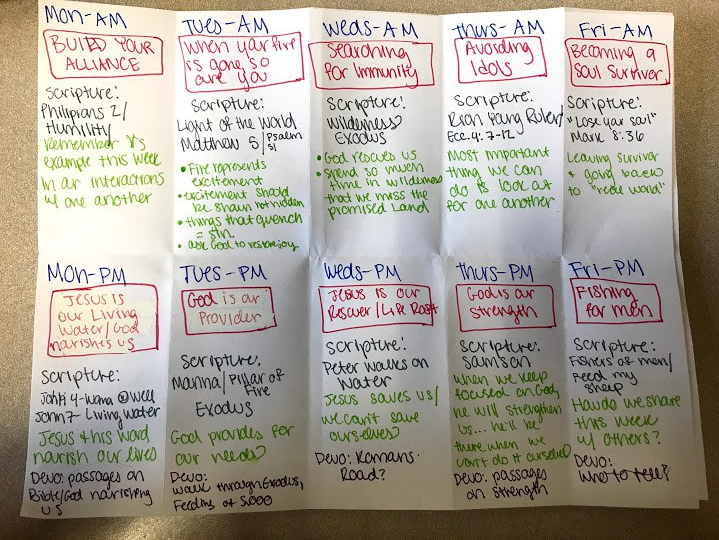 Mon-AM
BUILD YOUR
ALLIANCE
Scripture:
Philipians 2/
Humility
Remember J's
example this week
in our interactions
w/ one another
Tues-AM
When your fire
is gone, so
are you
Scripture:
Light of the World
Matthew 5/Psalm
51
• Fire represents
excitement
• excitement should
be shown not hidden
• things that quench
= sin.
• ask God to restore joy
Weds-AM
Searching
for Immunity
Scripture:
Wilderness
Exodus
• God rescues us
• spend so much
time in wilderness
that we miss the
promised Land
Thurs-AM
Avoiding
Idols
Scripture:
Rich Young Ruler/
Ecc. 4:7-12
Most important
thing we can
do is look at
for one another
Fri-AM
Becoming a
Soul Survivor
Scripture:
"Lose your soul"
Mark 8:36
Leaving survivor
& going back
to "real world"
Mon-PM
Jesus is
our Living
Water/God
nourishes us
Scripture:
John 4-woman @ well
John 7-Living Water
Jesus & his word
nourish our lives
Devo: passages on
Bible/God nourishing
us
Tues-PM
God is our
Provider
Scripture:
Manna/Pillar of
Fire
Exodus
God provides for
our needs
Devo:
walk through Exodus,
Feeding of 5000
Weds-PM
Jesus is our
Rescuer/Life Raft
Scripture:
Peter walks on
Water
Jesus saves us/
we can't save
ourselves
Devo: Romans
Road?
Thurs-PM
God is our
strength
Scripture:
Samson
when we keep
focused on God,
he will strengthen
us... he'll be
there when we
can't do it ourselves
Devo: passages
on strength
Fri-PM
Fishing
for men
Scripture:
Fishers of men/
Feed my
sheep
How do we share
this week
w/ others?
Devo:
Who to tell?